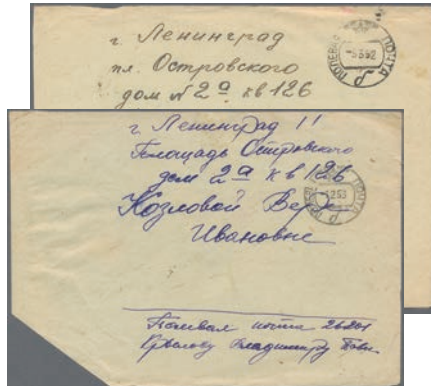 г. Ленинград
пл. Островского
дом № 2а кв 126
ПОЧТА
г Ленинград 11
Площадь Островского
дом 2а кв 126
Козловой Вере
Ивановне
ПОЧТА
Полевая почта 26201
Владимиру